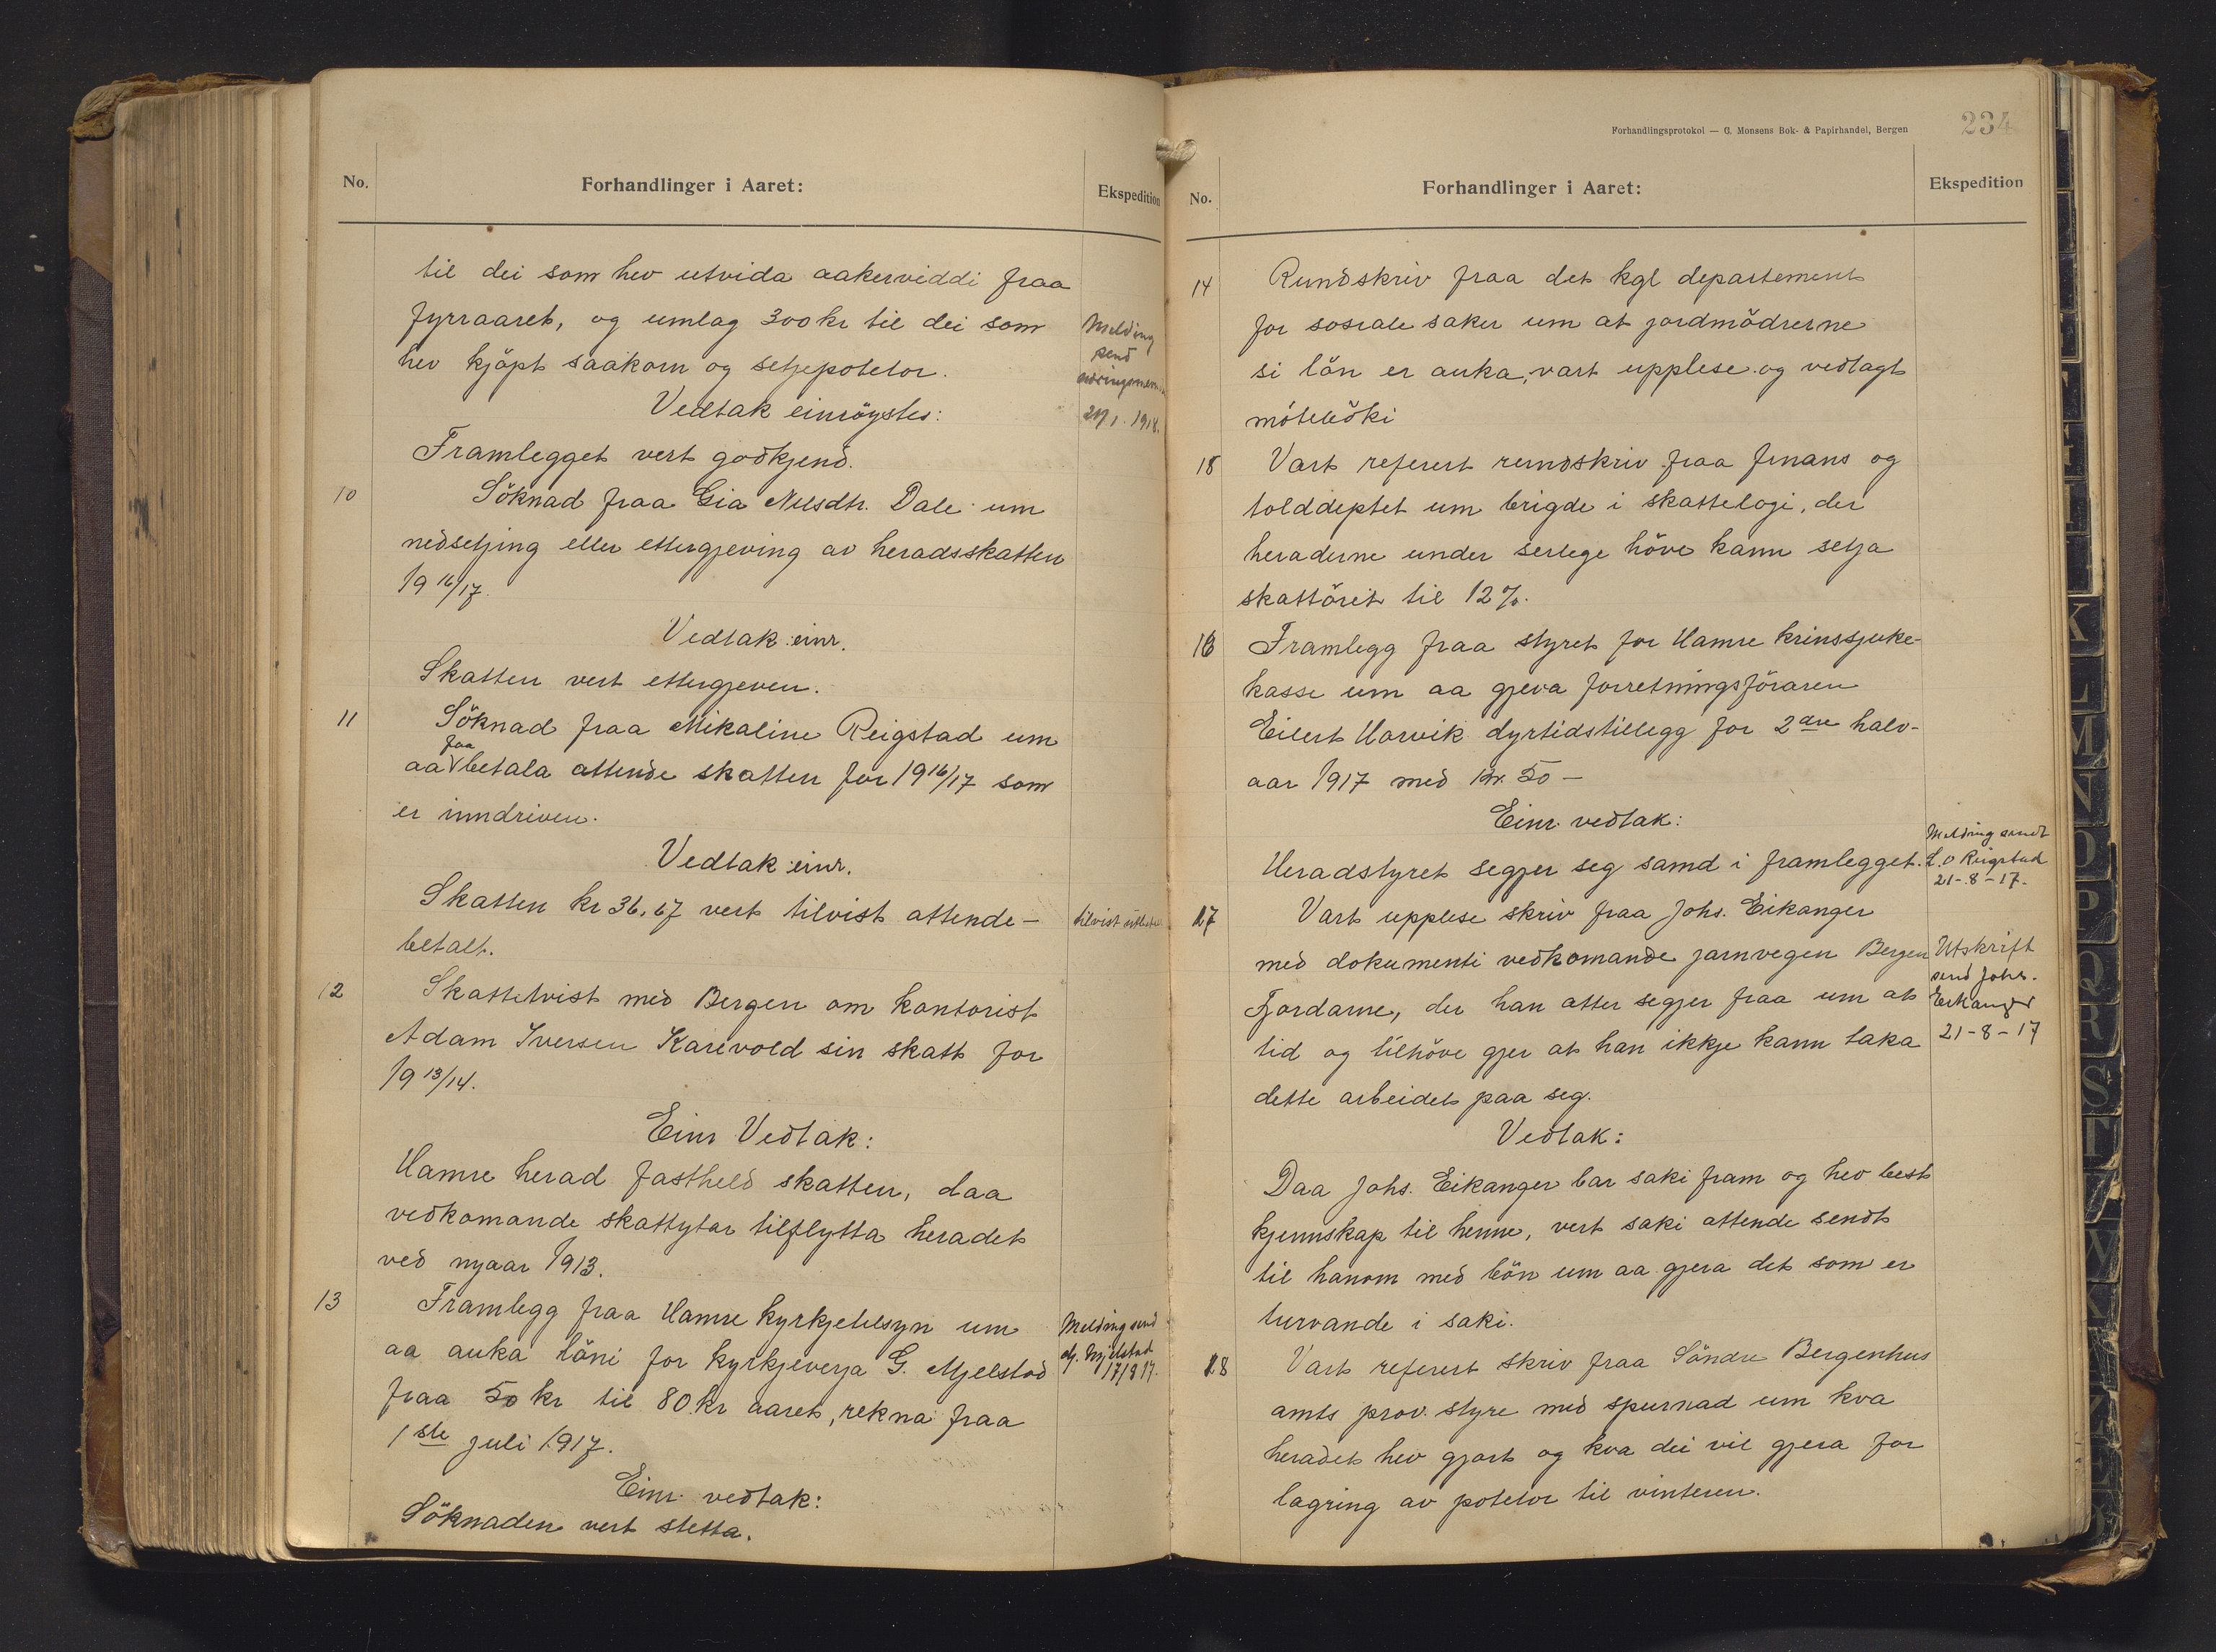 No.
Forhandlinger i Aaret:
Ekspedition
til dei som hev utvida aakerviddi fraa
fyrraaret, og umlag 300 kr til dei som
hev kjöpt saakorn og setjepotetor.
Melding
send
21/1. 1918.
Vedtak einröystes:
Framlegget vert godkjend.
10
Söknad fraa Gia Nilsdtr. Dale um
nedsetjing eller ettergjeving av heradsskatten
19 16/17.
Vedtak einr.
Skatten vert ettergjeven.
11
Söknad fraa Mikaline Reigstad um
faa
aa betala attende skatten for 19 16/17 som
er inndriven.
Vedtak einr.
Skatten kr 36,67 vert tilvist attende-
betalt.
tilvist
12
Skattetvist med Bergen om kontorist
Adam Iversen Karevold sin skatt for
19 13/14.
Einr Vedtak:
Hamre herad fastheld skatten, daa
vedkomande skattytar tilflytta heradet
ved nyaar 1913.
13
Framlegg fraa Hamre kyrkjetilsyn um
aa auka löni for kyrkjeverja G. Mjelstad
fraa 50 kr til 80 kr aaret, rekna fraa
1ste juli 1917.
Melding send
Mjelstad
17/8 17.
Einr. vedtak:
Söknaden vert stetta.
Forhandlingsprotokol — C. Monsens Bok- & Papirhandel, Bergen
234
No.
Forhandlinger i Aaret:
Ekspedition
14
Rundskriv fraa det kgl departement
for sosiale saker um at jordmödrerne
si lön er auka, vart upplese og vedlagt
möteböki
15
Vart referert rundskriv fraa finans og
tolddeptet um brigde i skattelogi, der
heraderne under serlege höve kann setja
skattöret til 12%.
16
Framlegg fraa styret for Hamre krinssjuke-
kasse um aa gjeva forretningsföraren
Eilert Horvik dyrtidstillegg for 2dre halv-
aar 1917 med kr. 50 —
Einr. vedtak:
Heradstyret segjer seg samd i framlegget.
Melding sendt
L. O Reigstad
21-8-17.
17
Vart upplese skriv fraa Johs. Eikanger
med dokumenti vedkomande jarnvegen Bergen
Fjordarne, der han atter segjer fraa um at
tid og tilhöve gjer at han ikkje kann taka
dette arbeidet paa seg.
Utskrift
send Johs.
Eikanger
21-8-17
Vedtak:
Daa Johs. Eikanger bar saki fram og hev best
kjennskap til henne, vert saki attende sendt
til hanom med bön um aa gjera det som er
turvande i saki.
18
Vart referert skriv fraa Söndre Bergenhus
amts prov. styre med spurnad um kva
heradet hev gjort og kva dei vil gjera for
lagring av potetor til vinteren.
K
L
M
N
O
P
Q
R
S
T